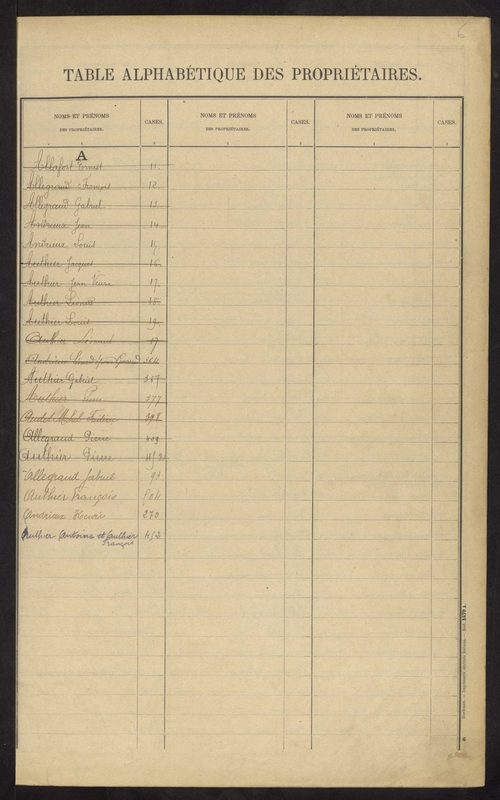 6
TABLE ALPHABÉTIQUE DES PROPRIÉTAIRES.
NOMS ET PRÉNOMS DES PROPRIÉTAIRES. CASES. NOMS ET PRÉNOMS DES PROPRIÉTAIRES. CASES. NOMS ET PRÉNOMS DES PROPRIÉTAIRES. CASES.
A
Allafort Ernest 11
Allegraud François 12
Allegraud Gabriel 13
Andrieux Jean 14
Andrieux Louis 15
Authier Jacques 16
Authier Jean 17
Authier Léonard 18
Authier Louis 19
Authier Léonard
Andrieux
Authier Gabriel
Authier 377
Audet Michel 398
Allegraud Pierre 409
Authier Pierre
Allegraud Gabriel
Authier François
Andrieux 270
Authier Antoine et Authier François 452